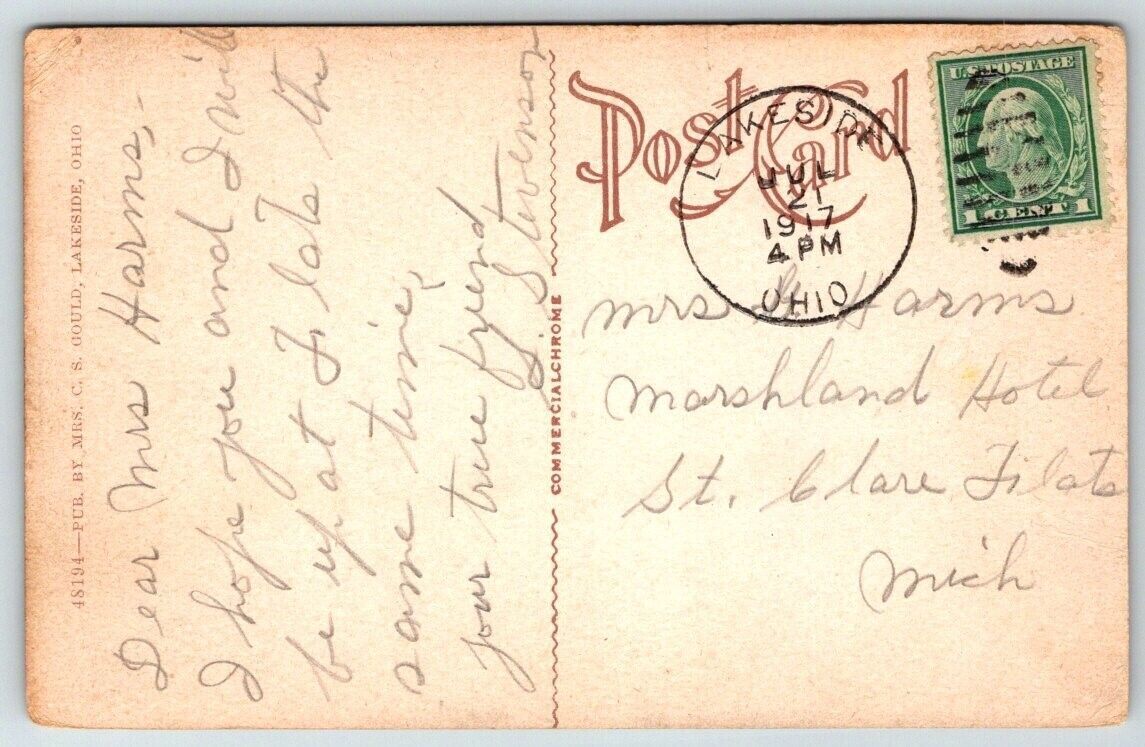 48194—PUB. BY MRS. C. S. GOULD, LAKESIDE, OHIO
Dear Mrs Harms,-
I hope you and I will
be up at Flats the
same time,
your true friend
S Stvenson
COMMERCIALCHROME
Post Card
LAKESIDE
JUL
21
1917
4 PM
OHIO
U.S. POSTAGE
1 CENT 1
Mrs G. Harms
Marshland Hotel
St. Clare Flats
Mich